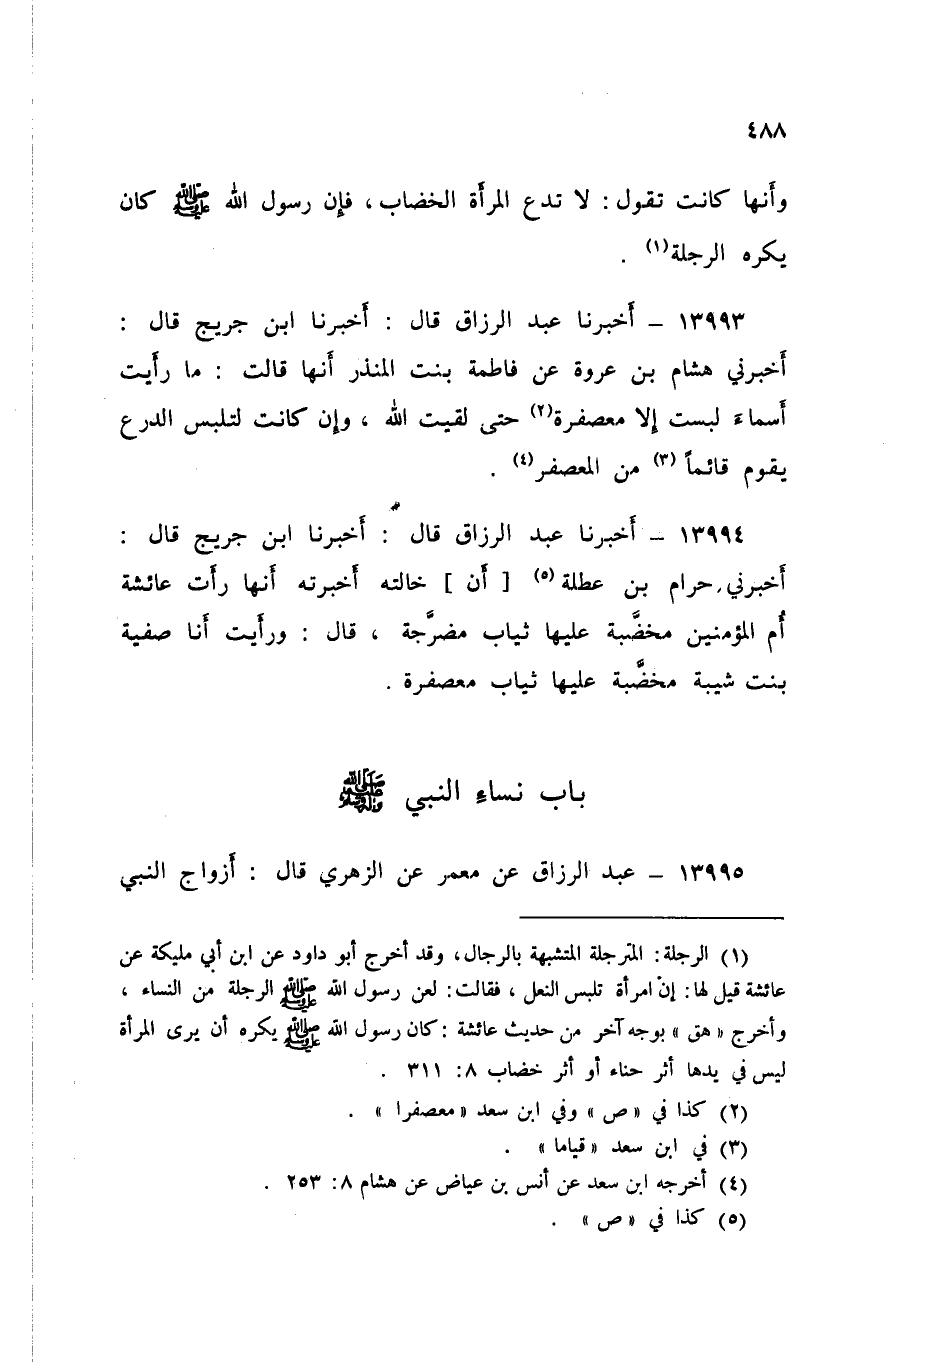 ٤٨٨
وأَنها كانت تقول : لا تدع المرأَة الخضاب ، فإِن رسول الله ﷺ كان
يكره الرجلة(١) .
١٣٩٩٣ – أَخبرنا عبد الرزاق قال : أَخبرنا ابن جريج قال :
أَخبرني هشام بن عروة عن فاطمة بنت المنذر أَنها قالت : ما رأَيت
أَسماءَ لبست إِلا معصفرة(٢) حتى لقيت الله ، وإِن كانت لتلبس الدرع
يقوم قائماً (٣) من المعصفر(٤) .
١٣٩٩٤ – أَخبرنا عبد الرزاق قال : أَخبرنا ابن جريج قال :
أَخبرني حرام بن عطلة(٥) [ أَن ] خالته أَخبرته أَنها رأَت عائشة
أُم المؤمنين مخضَّبة عليها ثياب مضرَّجة ، قال : ورأَيت أَنا صفية
بنت شيبة مخضَّبة عليها ثياب معصفرة .
باب نساءِ النبي ﷺ
١٣٩٩٥ – عبد الرزاق عن معمر عن الزهري قال : أَزواج النبي
(١) الرجلة : المترجلة المتشبهة بالرجال ، وقد أخرج أبو داود عن ابن أبي مليكة عن
عائشة قيل لها : إن امرأة تلبس النعل ، فقالت : لعن رسول الله ﷺ الرجلة من النساء ،
وأخرج « هق » بوجه آخر من حديث عائشة : كان رسول الله ﷺ يكره أن يرى المرأة
ليس في يدها أثر حناء أو أثر خضاب ٨ : ٣١١ .
(٢) كذا في « ص » وفي ابن سعد « معصفرا » .
(٣) في ابن سعد « قياما » .
(٤) أخرجه ابن سعد عن أنس بن عياض عن هشام ٨ : ٢٥٣ .
(٥) كذا في « ص » .